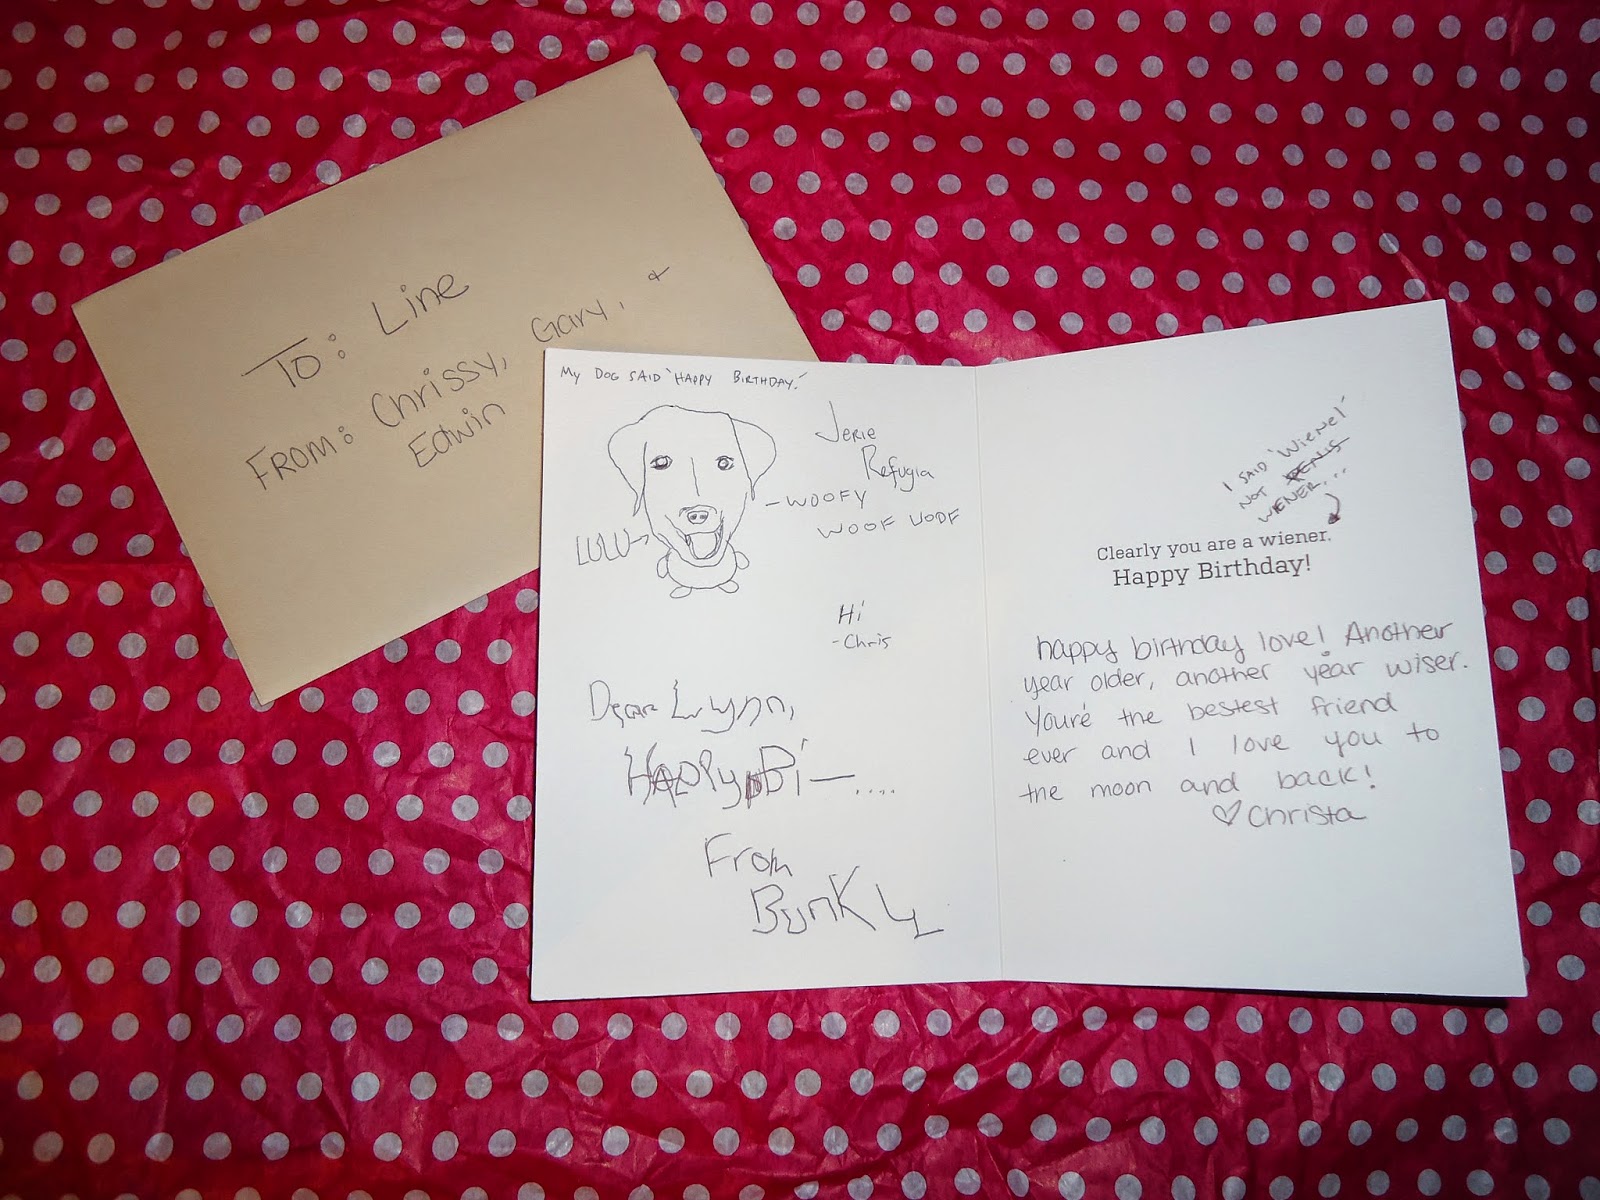 To: Line
From: Chrissy, Gary, &
Edwin
My Dog said 'Happy Birthday.'
Jerie
Refugia
- Woofy
Woof Woof
Lulu
Hi
- Chris
Dear
Happy Bi—....
From
Bunk
I said 'Wiene!'
not Penis
Wiener...
Clearly you are a wiener.
Happy Birthday!
happy birthday love! Another
year older, another year wiser.
You're the bestest friend
ever and I love you to
the moon and back!
♡ Christa